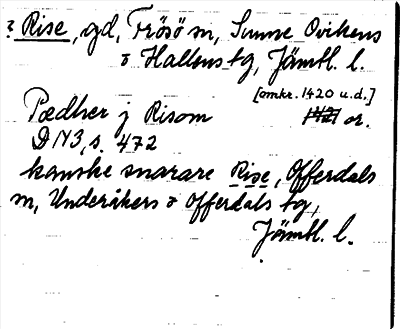 ? Rise, gd, Frösö sn, Sunne Ovikens
o Hallens tg, Jämtl. l.
[omkr. 1420 u.d.]
Pædher j Risom 1421 or.
DN3, s. 472
kanske snarare Rise, Offerdals
sn, Undersåkers o Offerdals tg,
Jämtl. l.